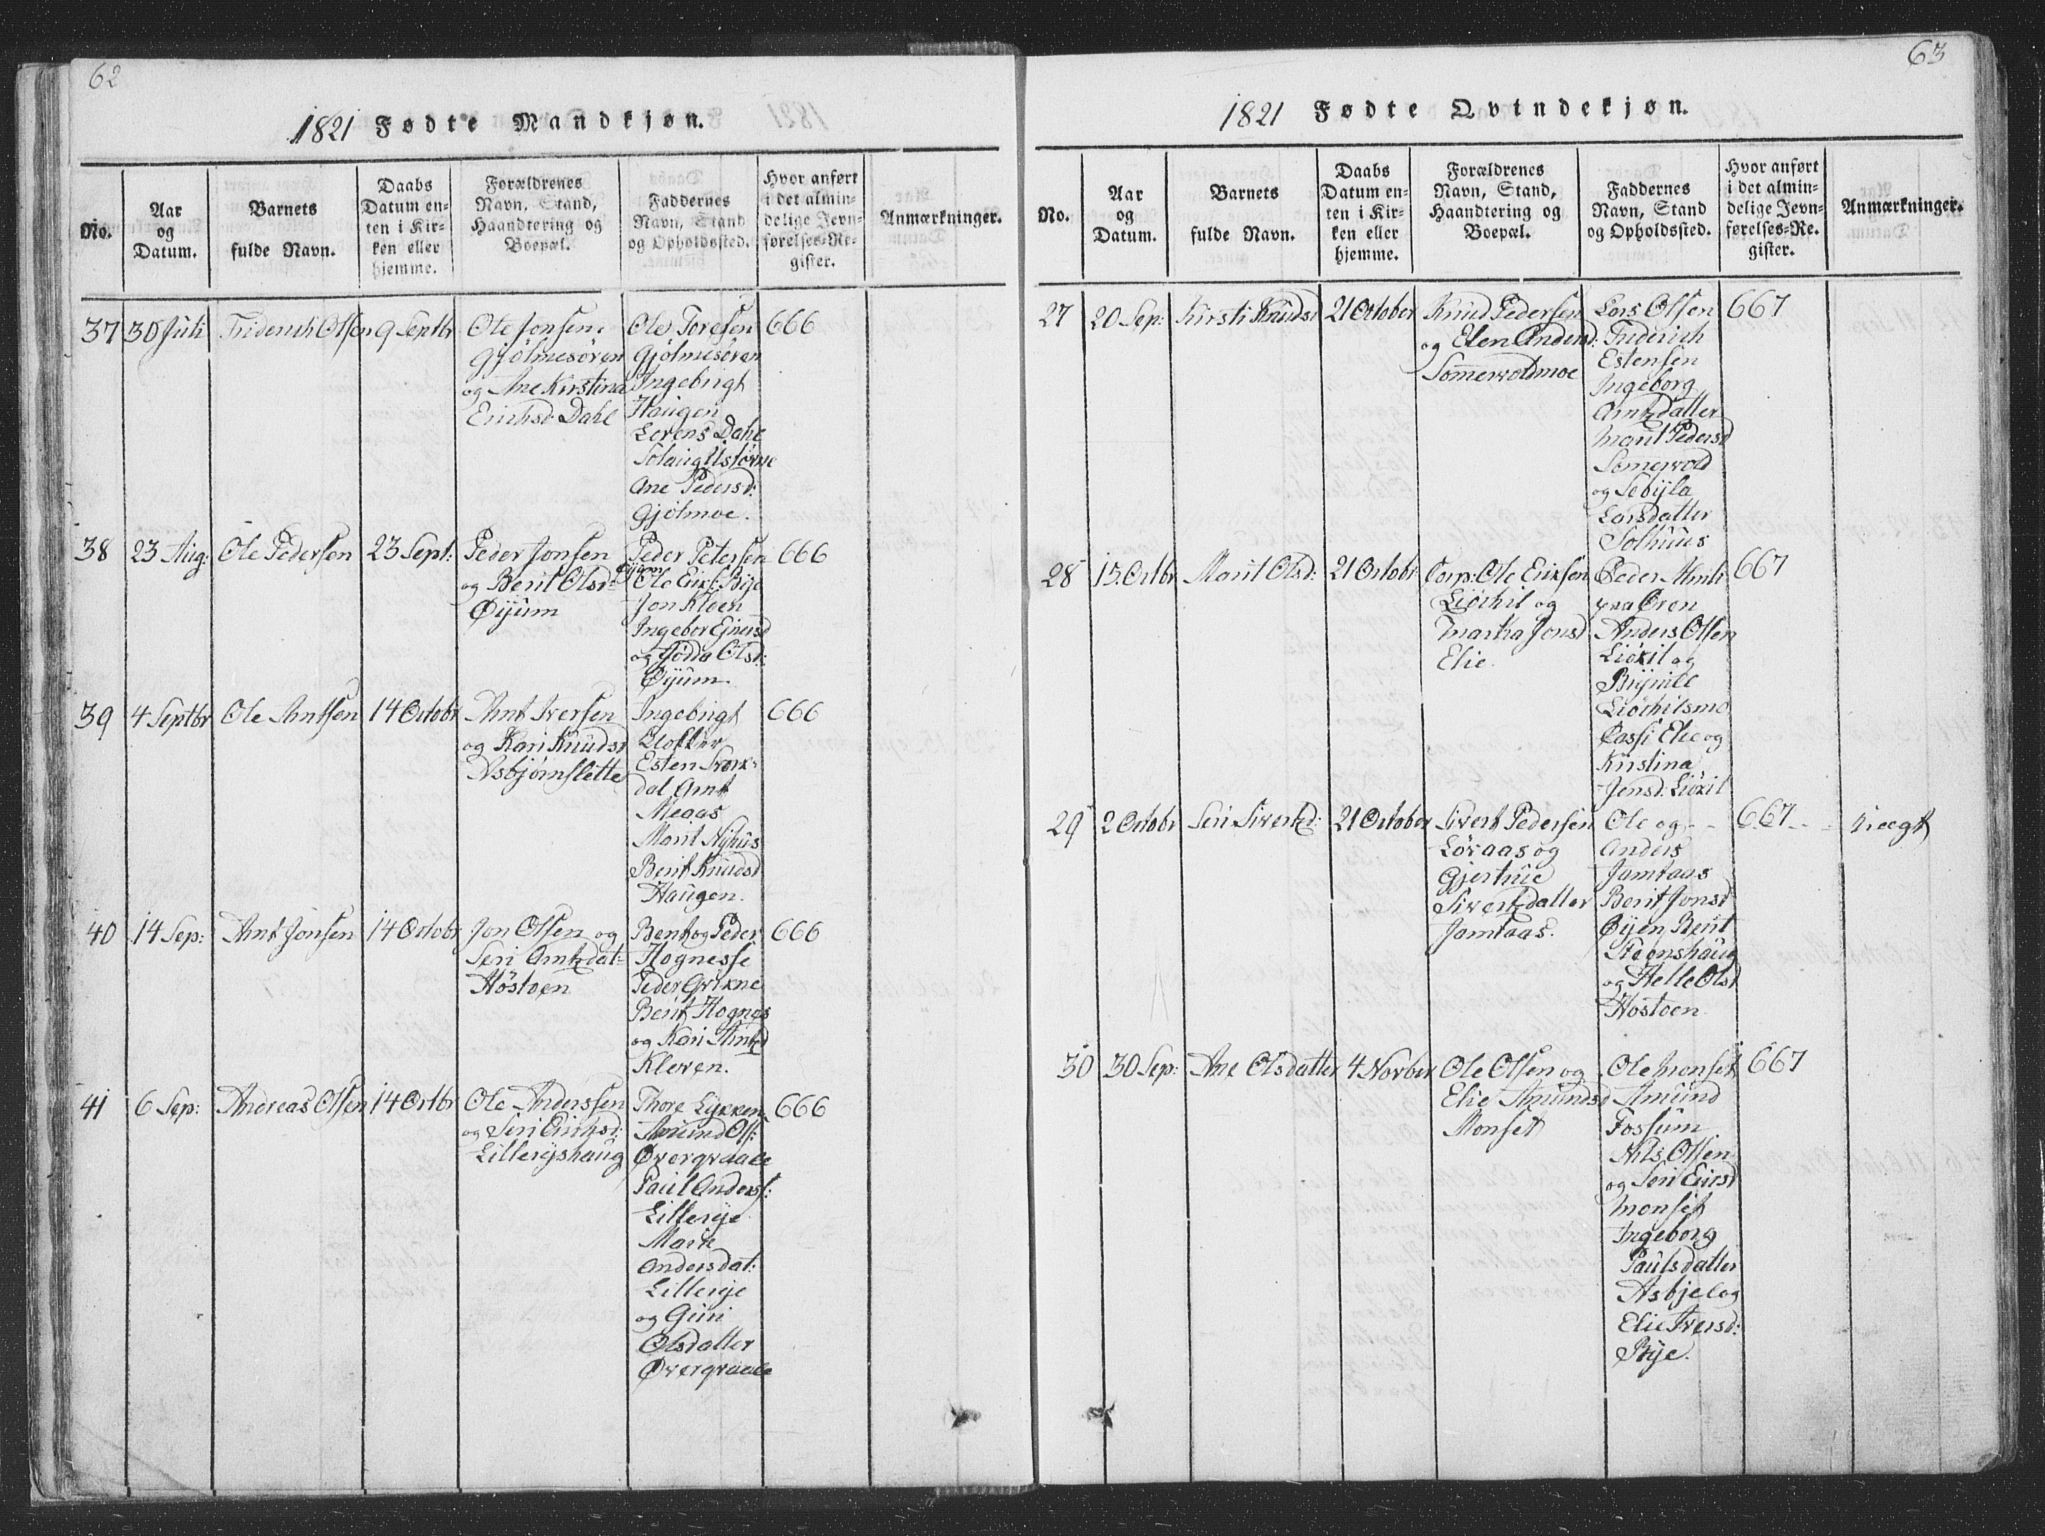 62
1821 Fødte Mandkjøn.
No.
Aar
og
Datum.
Barnets
fulde Navn.
Daabs
Datum en-
ten i Kir-
ken eller
hjemme.
Forældrenes
Navn, Stand,
Haandtering og
Boepæl.
Faddernes
Navn, Stand
og Opholdssted.
Hvor anført
i det almin-
delige Jevn-
førelses-Re-
gister.
Anmærkninger.
37 30 Juli Friderich Olsen 9 Septbr
Ole Jonsen
Gjølmesøren
og Ane Kirstina
Erichsd: Dahl
Ole Toresen
Gjølmesøren
Ingebrigt
Haugen
Lorens Dahl
Solaug Ustørne
Ane Pedersd:
Gjølmoe.
666
38 23 Aug: Ole Pedersen 23 Sept:
Peder Jonsen
og Berit Olsd
Øyum
Peder Petersen
Øyum
Ole Erik: Bye
Jon Kleen
Ingebor Ejnersd
og Jøda Olsd:
Øyum.
666
39 4 Septbr Ole Arntsen 14 Octobr
Arnt Iversen
og Kari Knudsd
Asbjørnslette
Ingebrigt
Klokker
Esten Svork-
dal Arnt
Megas
Marit Nyhus
Berit Knudsd
Haugen.
666
40 14 Sep: Arnt Jonsen 14 Octobr
Jon Olsen og
Seri Arntsdat-
Høstoen
Bent og Peder
Hognesse
Peder Grikne
Berit Hognes
og Kari Arntsd
Kleven.
666
41 6 Sep: Andreas Olsen 14 Octbr
Ole Anderssen
og Seri Eriksd:
Lilleryshaug
Thore Lykken
Amund Ols:
Øvergraale
Paul Anders:
Lillerye
Marit
Andersdat:
Lillerye
og Guri
Olsdatter
Øvergraale
666
63
1821 Fødte Qvindekjøn.
No.
Aar
og
Datum.
Barnets
fulde Navn.
Daabs
Datum en-
ten i Kir-
ken eller
hjemme.
Forældrenes
Navn, Stand,
Haandtering og
Boepæl.
Faddernes
Navn, Stand
og Opholdssted.
Hvor anført
i det almin-
delige Jevn-
førelses-Re-
gister.
Anmærkninger.
27 20 Sep: Kirsti Knudsd 21 October
Knud Pedersen
og Elen Andersd:
Somervoldmoe
Lars Olsen
Friderich
Estensen
Ingeborg
Arntzdatter
Marit Pedersd
Somervold
og Sebyla
Larsdatter
Solhuus
667
28 15 Octbr Marit Olsd: 21 Octobr
Corp: Ole Eriksen
Liøkil og
Martha Jonsd
Elie.
Peder Arnt:
paa Øren
Anders Olsen
Liøkil og
Brynild
Liøkilsmo
Cassi Elie og
Kirstina
Jensd: Liøkil
667
29 2 Octobr Seri Sivertsd: 21 October
Sivert Pedersen
Løraas og
Gjertrue
Sivertsdatter
Jamtaas.
Ole og
Anders
Jamtaas
Berit Jonsd
Øyen Berit
Steenshaug
og Helle Olsd
Høstoen
667
uægt
30 30 Sep: Ane Olsdatter 4 Novber
Ole Olsen og
Elie Amundsd
Monset
Ole Monset
Amund
Fossum
Nils Olsen
og Seri Ericsd
Monset
Ingeborg
Paulsdatter
Asbjel og
Elie Iversd:
Rye.
667